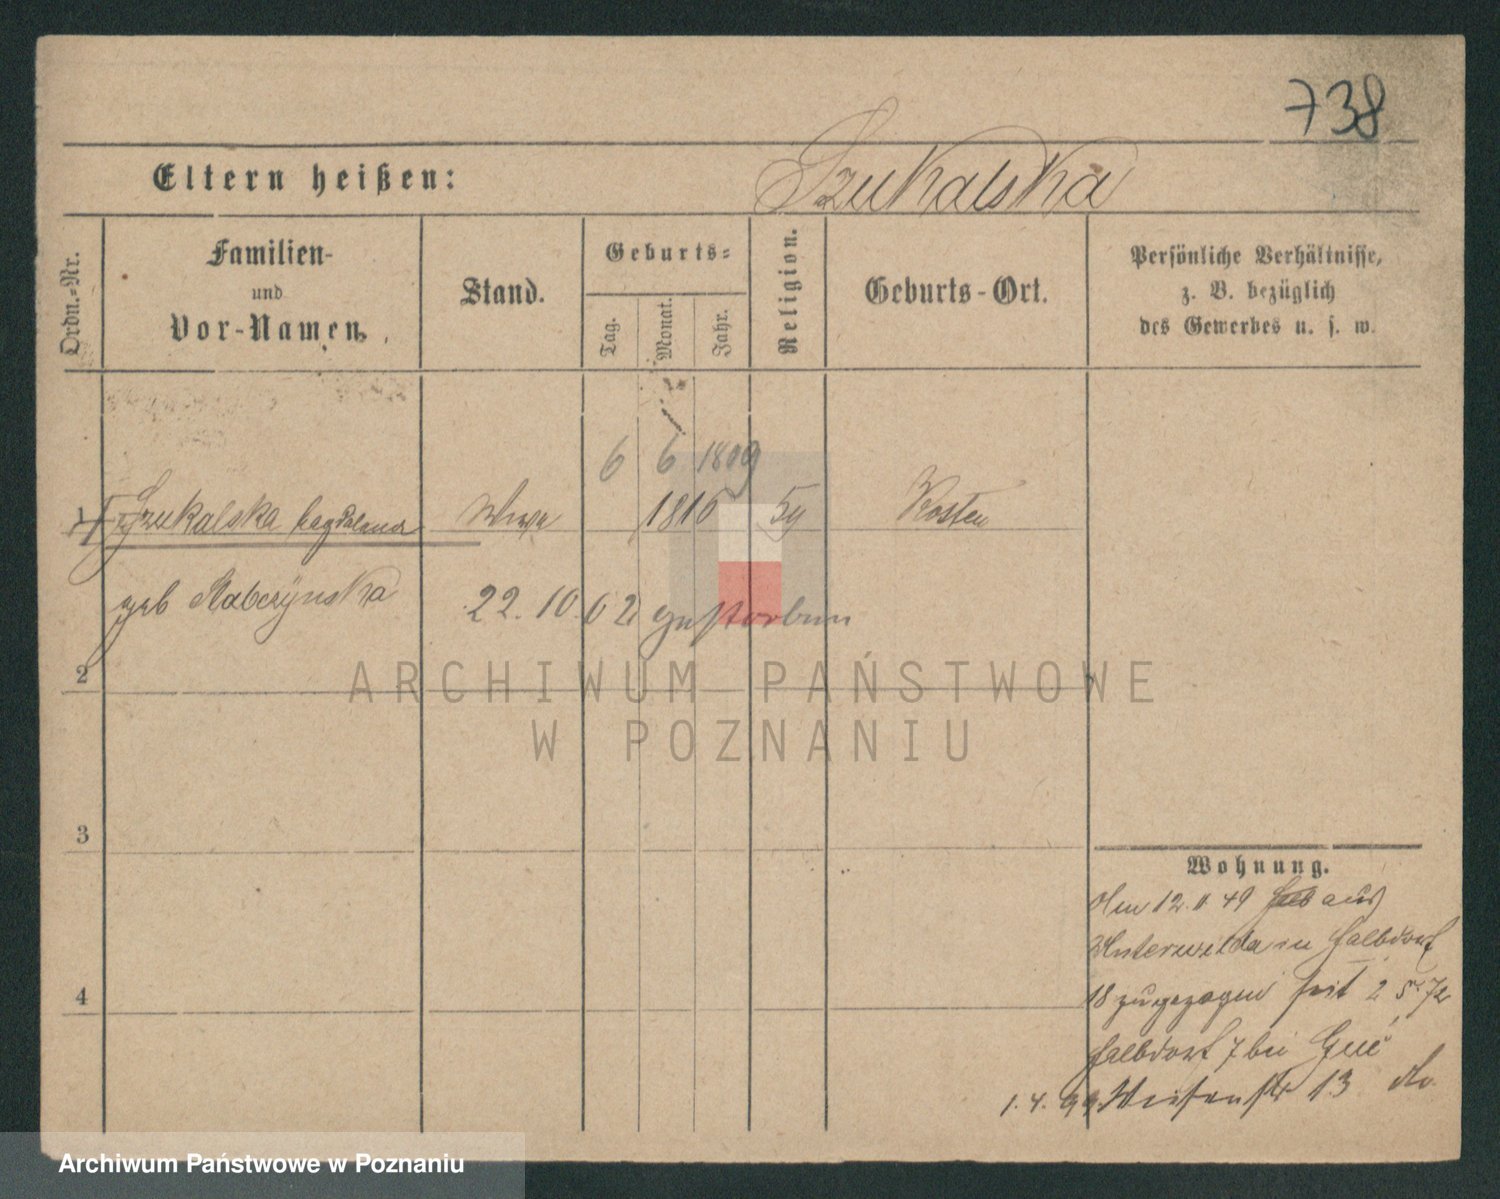 738
Eltern heißen:
Szukalska
Ordn.-Nr.
Familien-
und
Vor-Namen.
Stand.
Geburts-
Tag.
Monat.
Jahr.
Religion.
Geburts-Ort.
Persönliche Verhältnisse,
z. B. bezüglich
des Gewerbes u. s. w.
6 6 1809
1
Szukalska Magdalena
Wwe
1816
Kosten
geb
22. 10. 02 gestorben
2
ARCHIWUM PAŃSTWOWE
W POZNANIU
3
4
Wohnung.
12. 11 49 aus
Unterwilda in Halbdorf
18 zugezogen seit 2 5 72
Halbdorf 7 bei
1. 4. 99. Wiesenstr 13
Archiwum Państwowe w Poznaniu